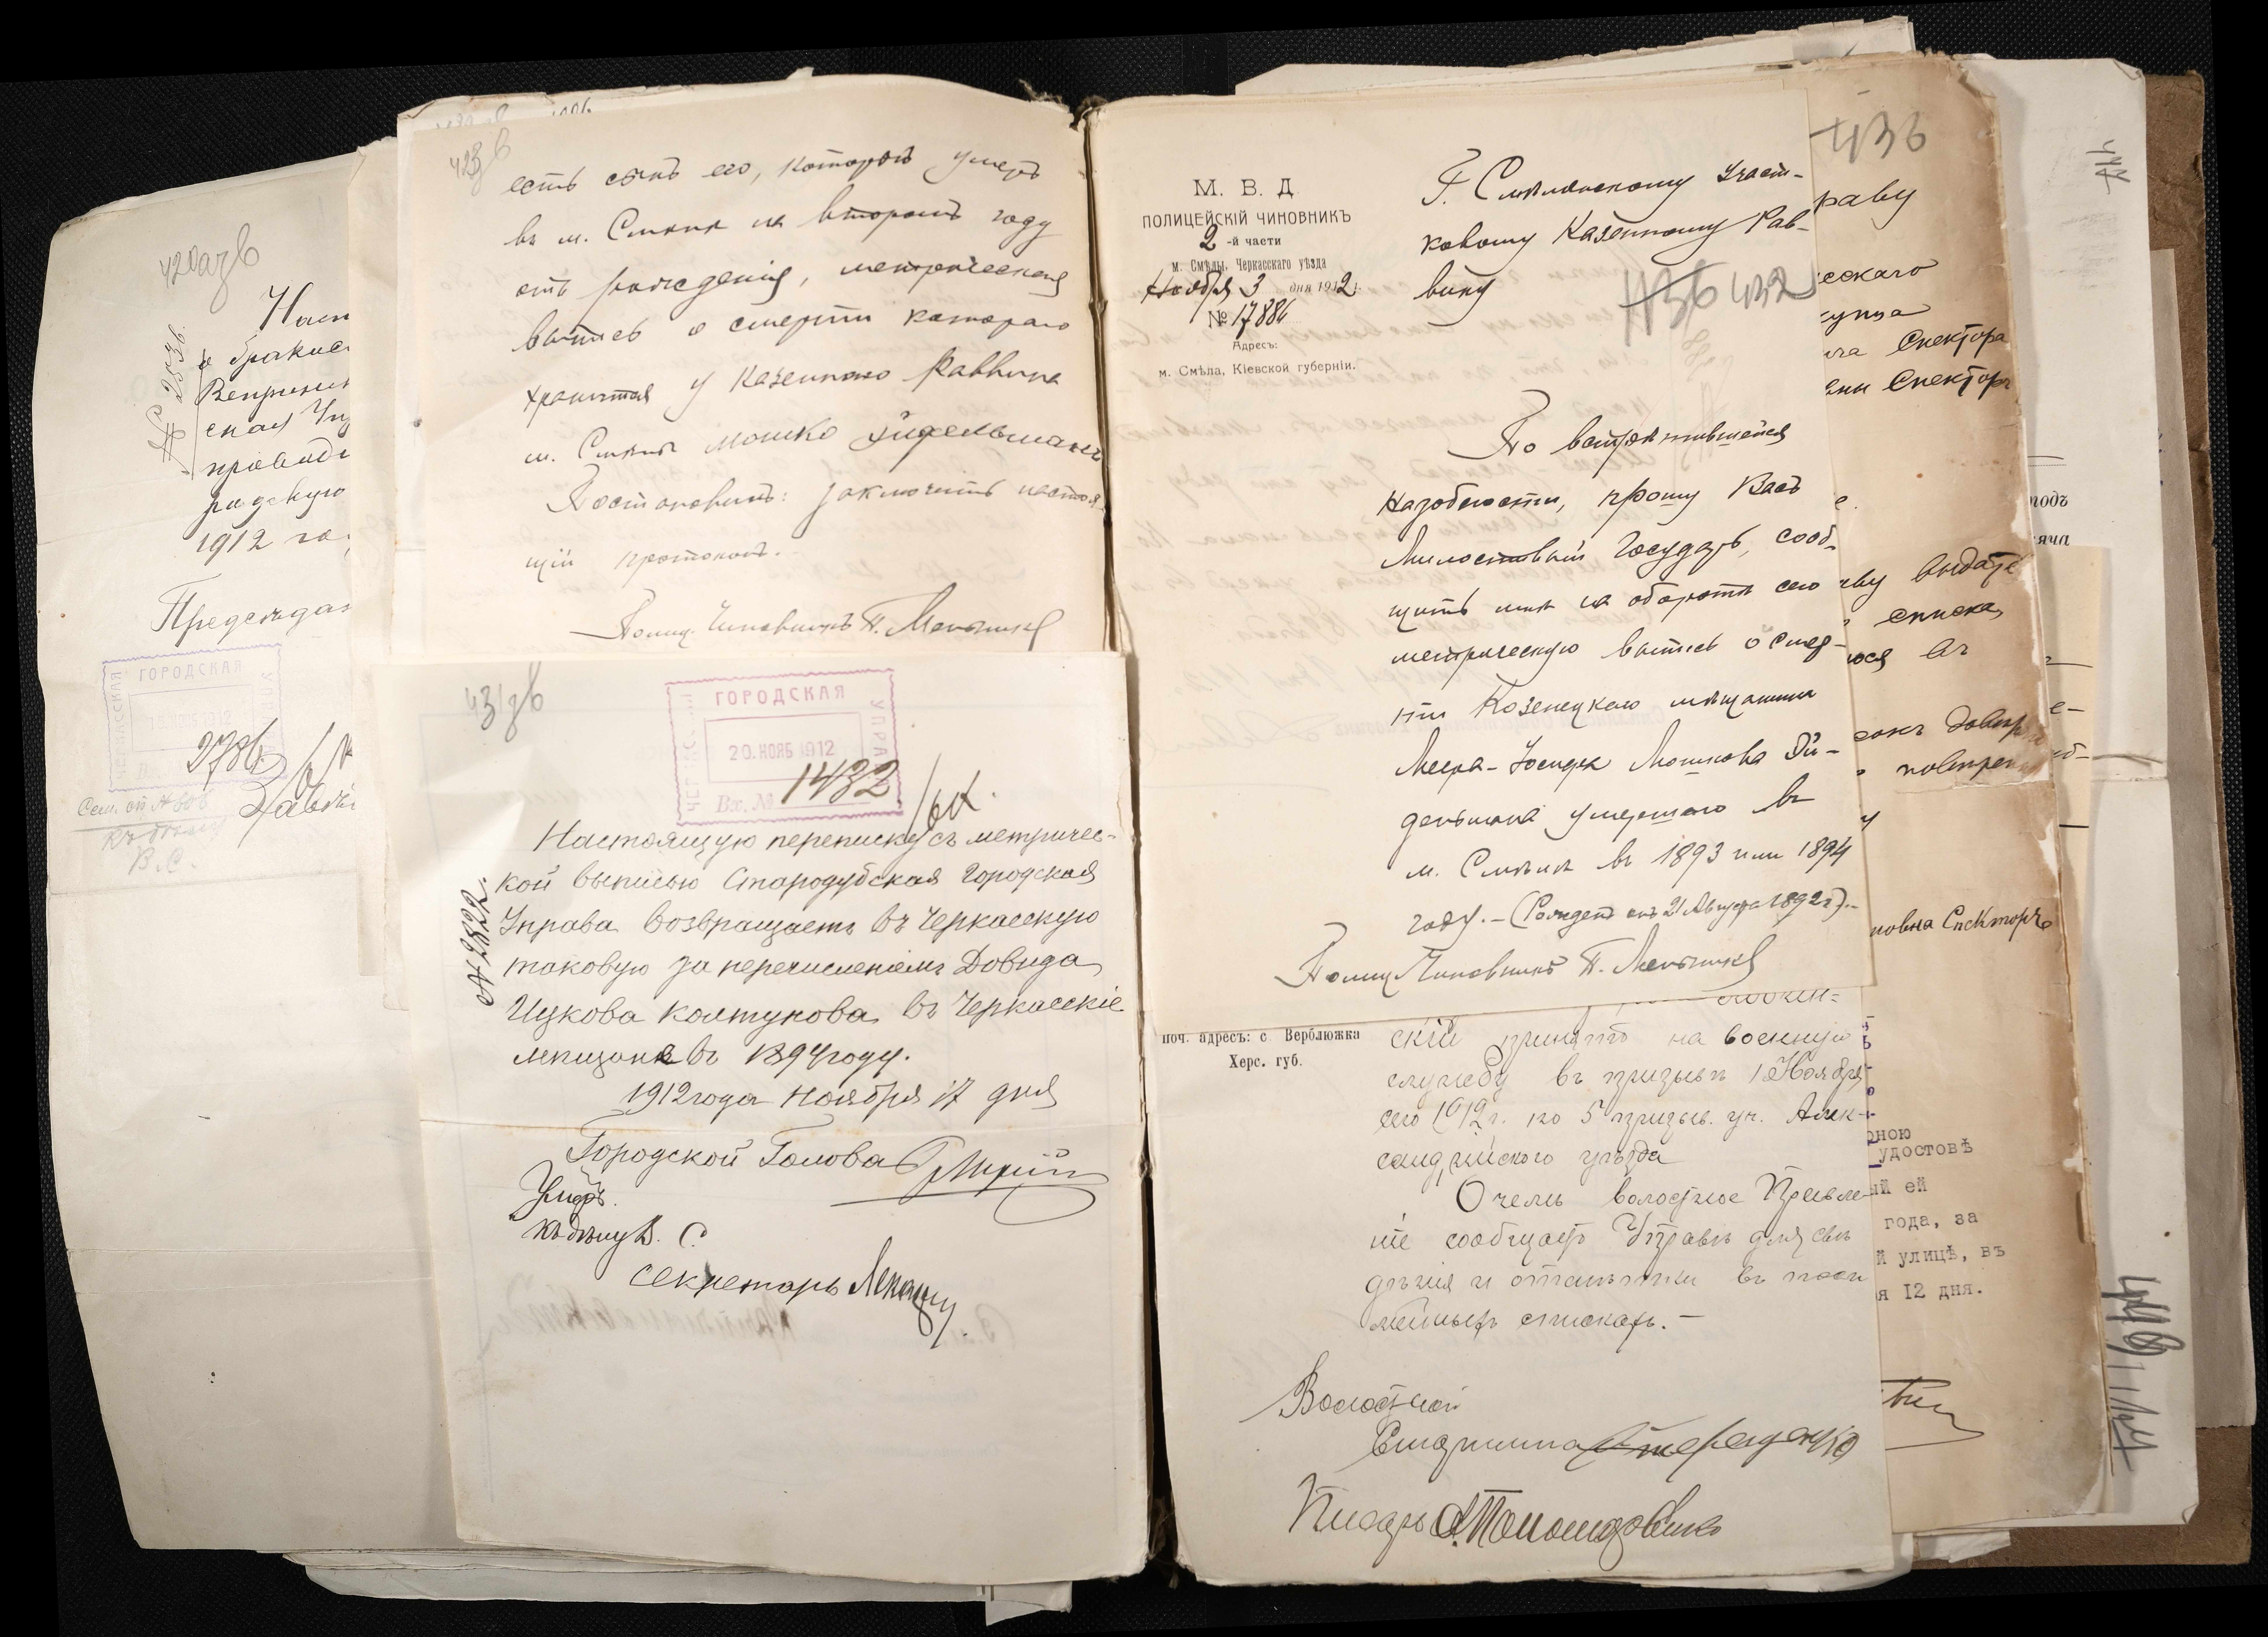 420 зв
№ 2536.
Наст
о бракос
Веприн
ская Уп
провод
радскую
1912 го
Председа
ГОРОДСКАЯ
УПР
1912
2786
Завѣ
къ дѣлу
В. С.
423 зв
есть сынъ его, который умеръ
въ м. Смѣлѣ на второмъ году
отъ рожденія, метрическая
выпись о смерти котораго
хранится у Казеннаго Раввина
м. Смѣлы Мошко Эйдельмана
Постановилъ: заключить настоя-
щій протоколъ.
Полиц. Чиновникъ П. Мельник
431 зв
ГОРОДСКАЯ
УПРА
20. НОЯБ 1912
Вх. № 1432
Настоящую переписку съ метричес-
кой выписью Стародубская Городская
Управа возвращаетъ въ Черкасскую
таковую за перечисленіемъ Довида
Ицкова Колтунова въ Черкасскіе
мѣщане въ 1894 году.
1912 года Ноября 17 дня
№ 2822.
Городской Голова
къ дѣлу В. С.
Секретарь
М. В. Д.
ПОЛИЦЕЙСКІЙ ЧИНОВНИКЪ
2-й части
м. Смѣлы, Черкасскаго уѣзда
Ноября 3 дня 1912 г.
№ 17886
Адресъ:
м. Смѣла, Кіевской губерніи.
Г. Смѣлянскому Участ-
ковому Казенному Рав-
вину
436 432
По встрѣтившейся
надобности, прошу Васъ
Милостивый Государь, сооб-
щить мнѣ на оборотѣ сего
метрическую выпись о смер-
ти Козенецкаго мѣщанина
Меера-Іосифа Мошкова Эй-
дельмана умершаго въ
м. Смѣлѣ въ 1893 или 1894
году. — (Рожденъ онъ 21 Августа 1892 г.). —
Полиц. Чиновникъ П. Мельник
поч. адресъ: с. Верблюжка
Херс. губ.
скій принятъ на военную
службу въ призывъ 1 Ноября
сего 1912 г. по 5 призыв. уч. Алек-
сандрійского уѣзда
О чемъ волостное Правле-
ніе сообщаетъ Управѣ для свѣ
дѣнія и отмѣтки въ посе
мейныхъ спискахъ. —
Волостной
Старшина
Писарь
436
раву
ескаго
купца
ча Спектора
Спектор
е.
ву выдать
списка,
юся въ
довѣр
новна Спекторъ
рною
удостовѣ
ый ей
года, за
й улицѣ, въ
я 12 дня.
годъ
яча
447
448